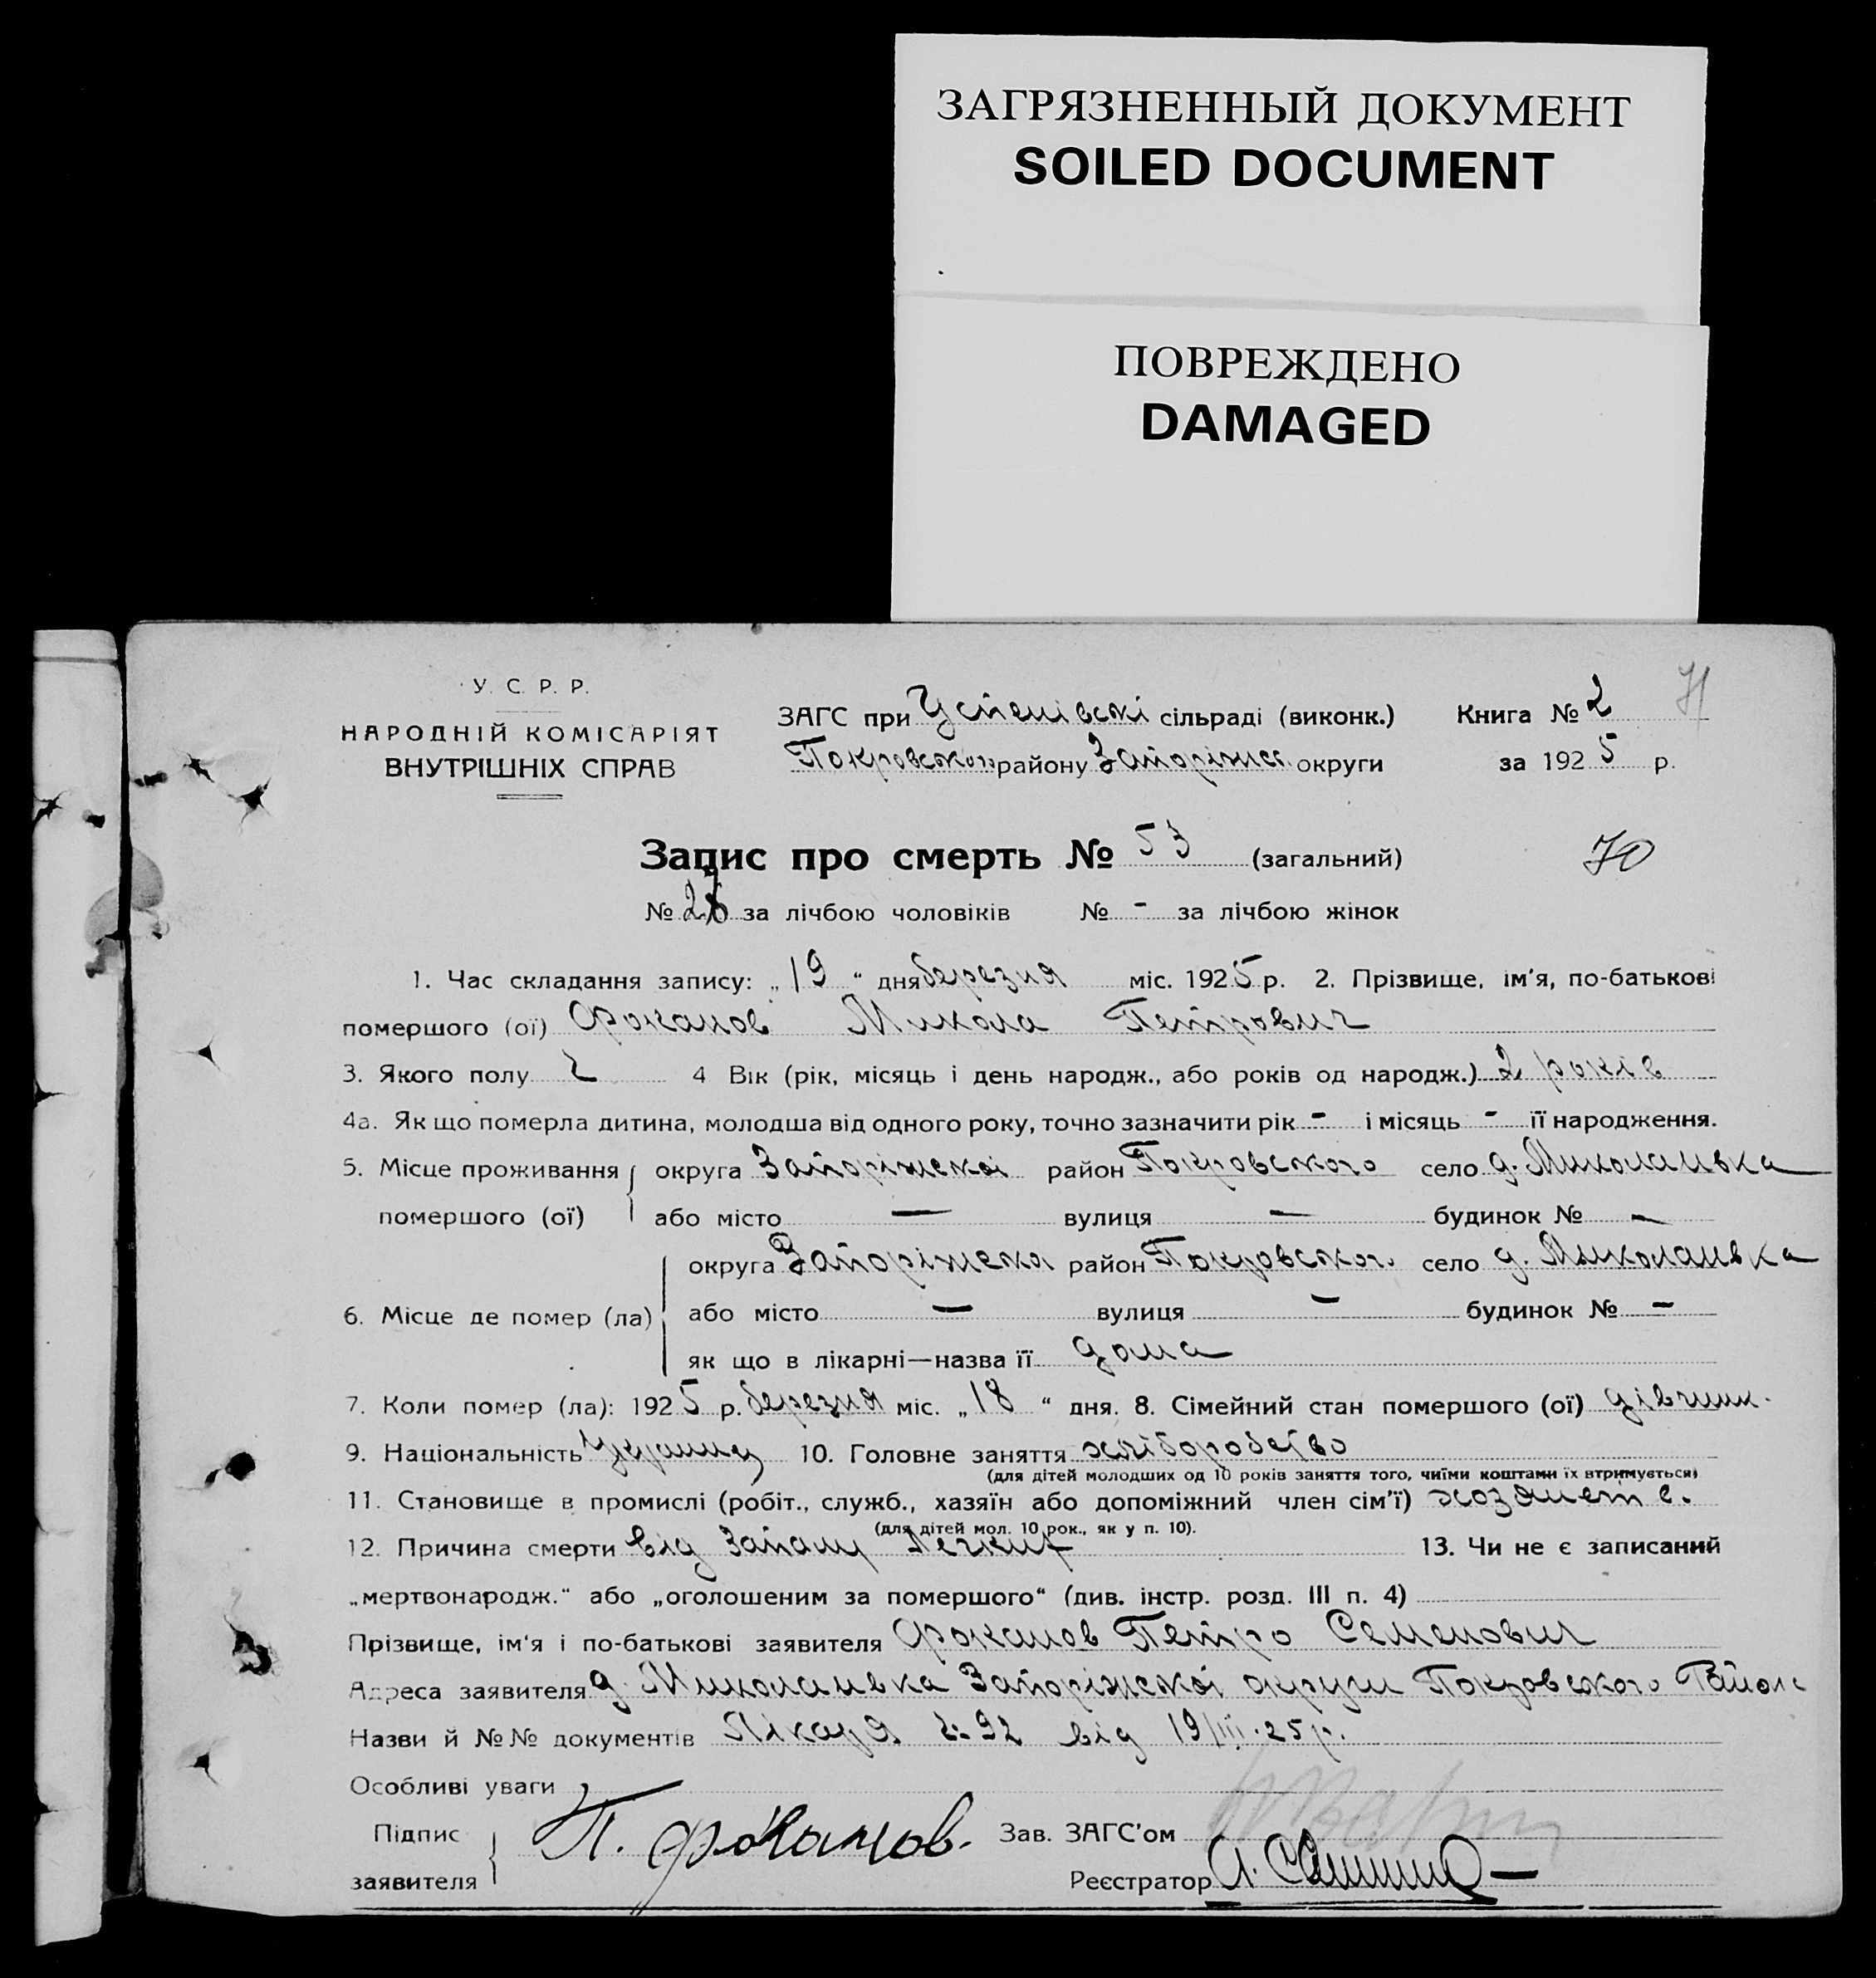 ЗАГРЯЗНЕННЫЙ ДОКУМЕНТ
SOILED DOCUMENT
ПОВРЕЖДЕНО
DAMAGED
У. С. Р. Р.
НАРОДНІЙ КОМІСАРІЯТ
ВНУТРІШНІХ СПРАВ
ЗАГС при Успенівскі сільраді (виконк.) Книга № 2 71
Покровського району Запоріжск округи за 1925 р.
Запис про смерть № 53 (загальний) 70
№ за лічбою чоловіків № - за лічбою жінок
1. Час складання запису: „19“ дня березня міс. 1925 р. 2. Прізвище, ім'я, по-батькові
помершого (ої) Фоканов Микола Петрович
3. Якого полу Ч 4 Вік (рік, місяць і день народж., або років од народж.) 2 років
4а. Як що померла дитина, молодша від одного року, точно зазначити рік - і місяць - її народження.
5. Місце проживання округа Запоріжскої район Покровського село д. Миколаивка
помершого (ої) або місто — вулиця — будинок № —
округа Запоріжска район Покровського село д. Миколаивка
6. Місце де помер (ла) або місто — вулиця — будинок № —
як що в лікарні—назва її дома
7. Коли помер (ла): 1925 р. березня міс. „18“ дня. 8. Сімейний стан помершого (ої)
9. Національність Украинец 10. Головне заняття хліборобство
(для дітей молодших од 10 років заняття того, чиїми коштами їх втримується)
11. Становище в промислі (робіт., служб., хазяїн або допоміжний член сім'ї)
(для дітей мол. 10 рок., як у п. 10).
12. Причина смерти від Запалу Легких 13. Чи не є записаний
„мертвонародж.“ або „оголошеним за помершого“ (див. інстр. розд. III п. 4)
Прізвище, ім'я і по-батькові заявителя Фоканов Петро Семенович
Адреса заявителя д. Миколаивка Запоріжскої округи Покровського Району
Назви й №№ документів Лікаря ч. 92 від 19/III-25 р.
Особливі уваги
Підпис
заявителя П. Фоканов. Зав. ЗАГС'ом
Реєстратор